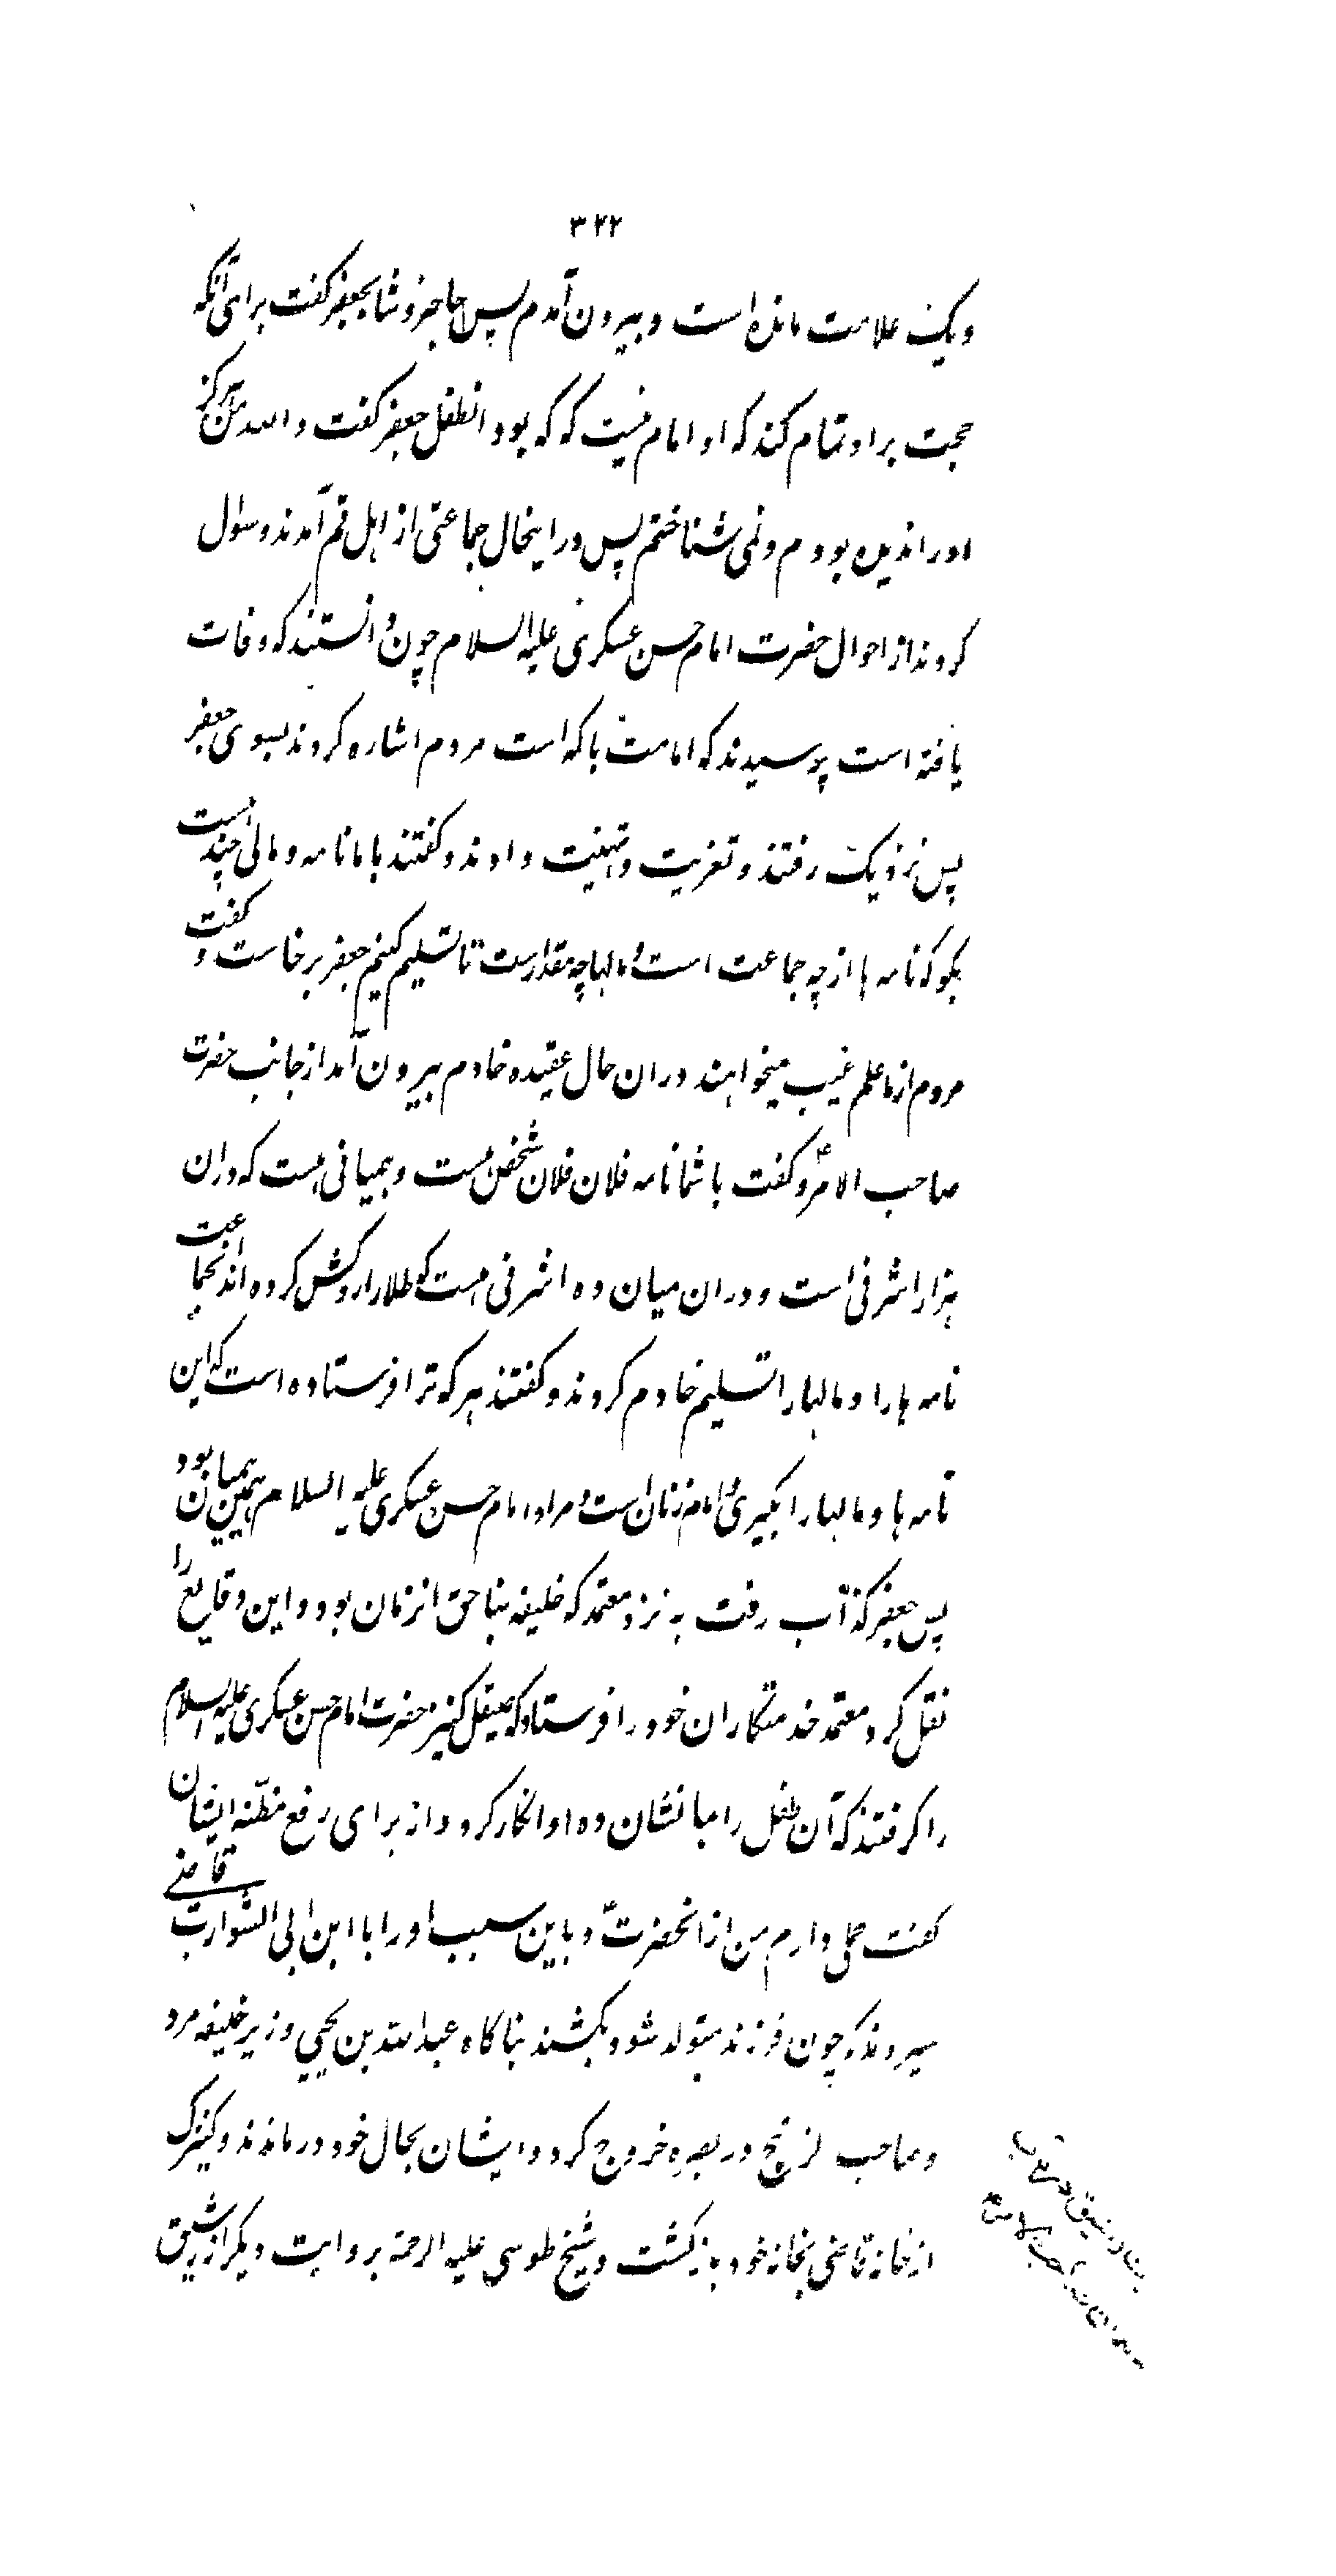 ۳۲۲
ویک علامت مانده است و بیرون آمدم پس حاجز وشا بجعفر گفت برای آنکه
حجت بر او تمام کند که او امام نیست که که بود انطفل جعفر گفت والله من هرگز
اورا ندیده بودم و نمی شناختم پس در اینحال جماعتی از اهل قم آمدند وسوال
کردند از احوال حضرت امام حسن عسکری علیه السلام چون دانستند که وفات
یافته است پرسیدند که امامت با که است مردم اشاره کردند بسوی جعفر
پس نزدیک رفتند و تعزیت و تهنیت دادند و گفتند با ما نامه و مالی چند هست
بگو که نامه ها از چه جماعت است و مالها چه مقدارست تا تسلیم کنیم جعفر برخاست و گفت
مردم از ما علم غیب میخواهند دران حال عقیده خادم بیرون آمد از جانب حضرت
صاحب الامرؑ و گفت با شما نامه فلان فلان شخص هست و همیانی هست که دران
هزار اشرفی است و دران میان ده اشرفی هست که طلا را روکش کرده اند انجماعت
نامه ها را و مالها را تسلیم خادم کردند و گفتند هر که ترا فرستاده است که این
نامه ها و مالها را بگیری او امام زمان است و مراد امام حسن عسکری علیه السلام همین همیان بود
پس جعفر کذاب رفت به نزد معتمد که خلیفه بناحق انزمان بود و این وقایع را
نقل کرد معتمد خدمتکاران خود را فرستاد که صیقل کنیز حضرت امام حسن عسکری علیه السلام
را گرفتند که آن طفل را بما نشان ده او انکار کرد و از برای رفع مظنّه ایشان
گفت حملی دارم من از انحضرتؑ و باین سبب اورا بابن ابی الشوارب قاضی
سپردند که چون فرزند متولد شود بکشند بناگاه عبدالله بن یحیی وزیر خلیفه مرد
وصاحب لزنج در بصره خروج کرد و ایشان بحال خود درماندند و کنیزک
از خانه قاضی بخانه خود بازگشت و شیخ طوسی علیه الرحمة بروایت دیگر از رشیق